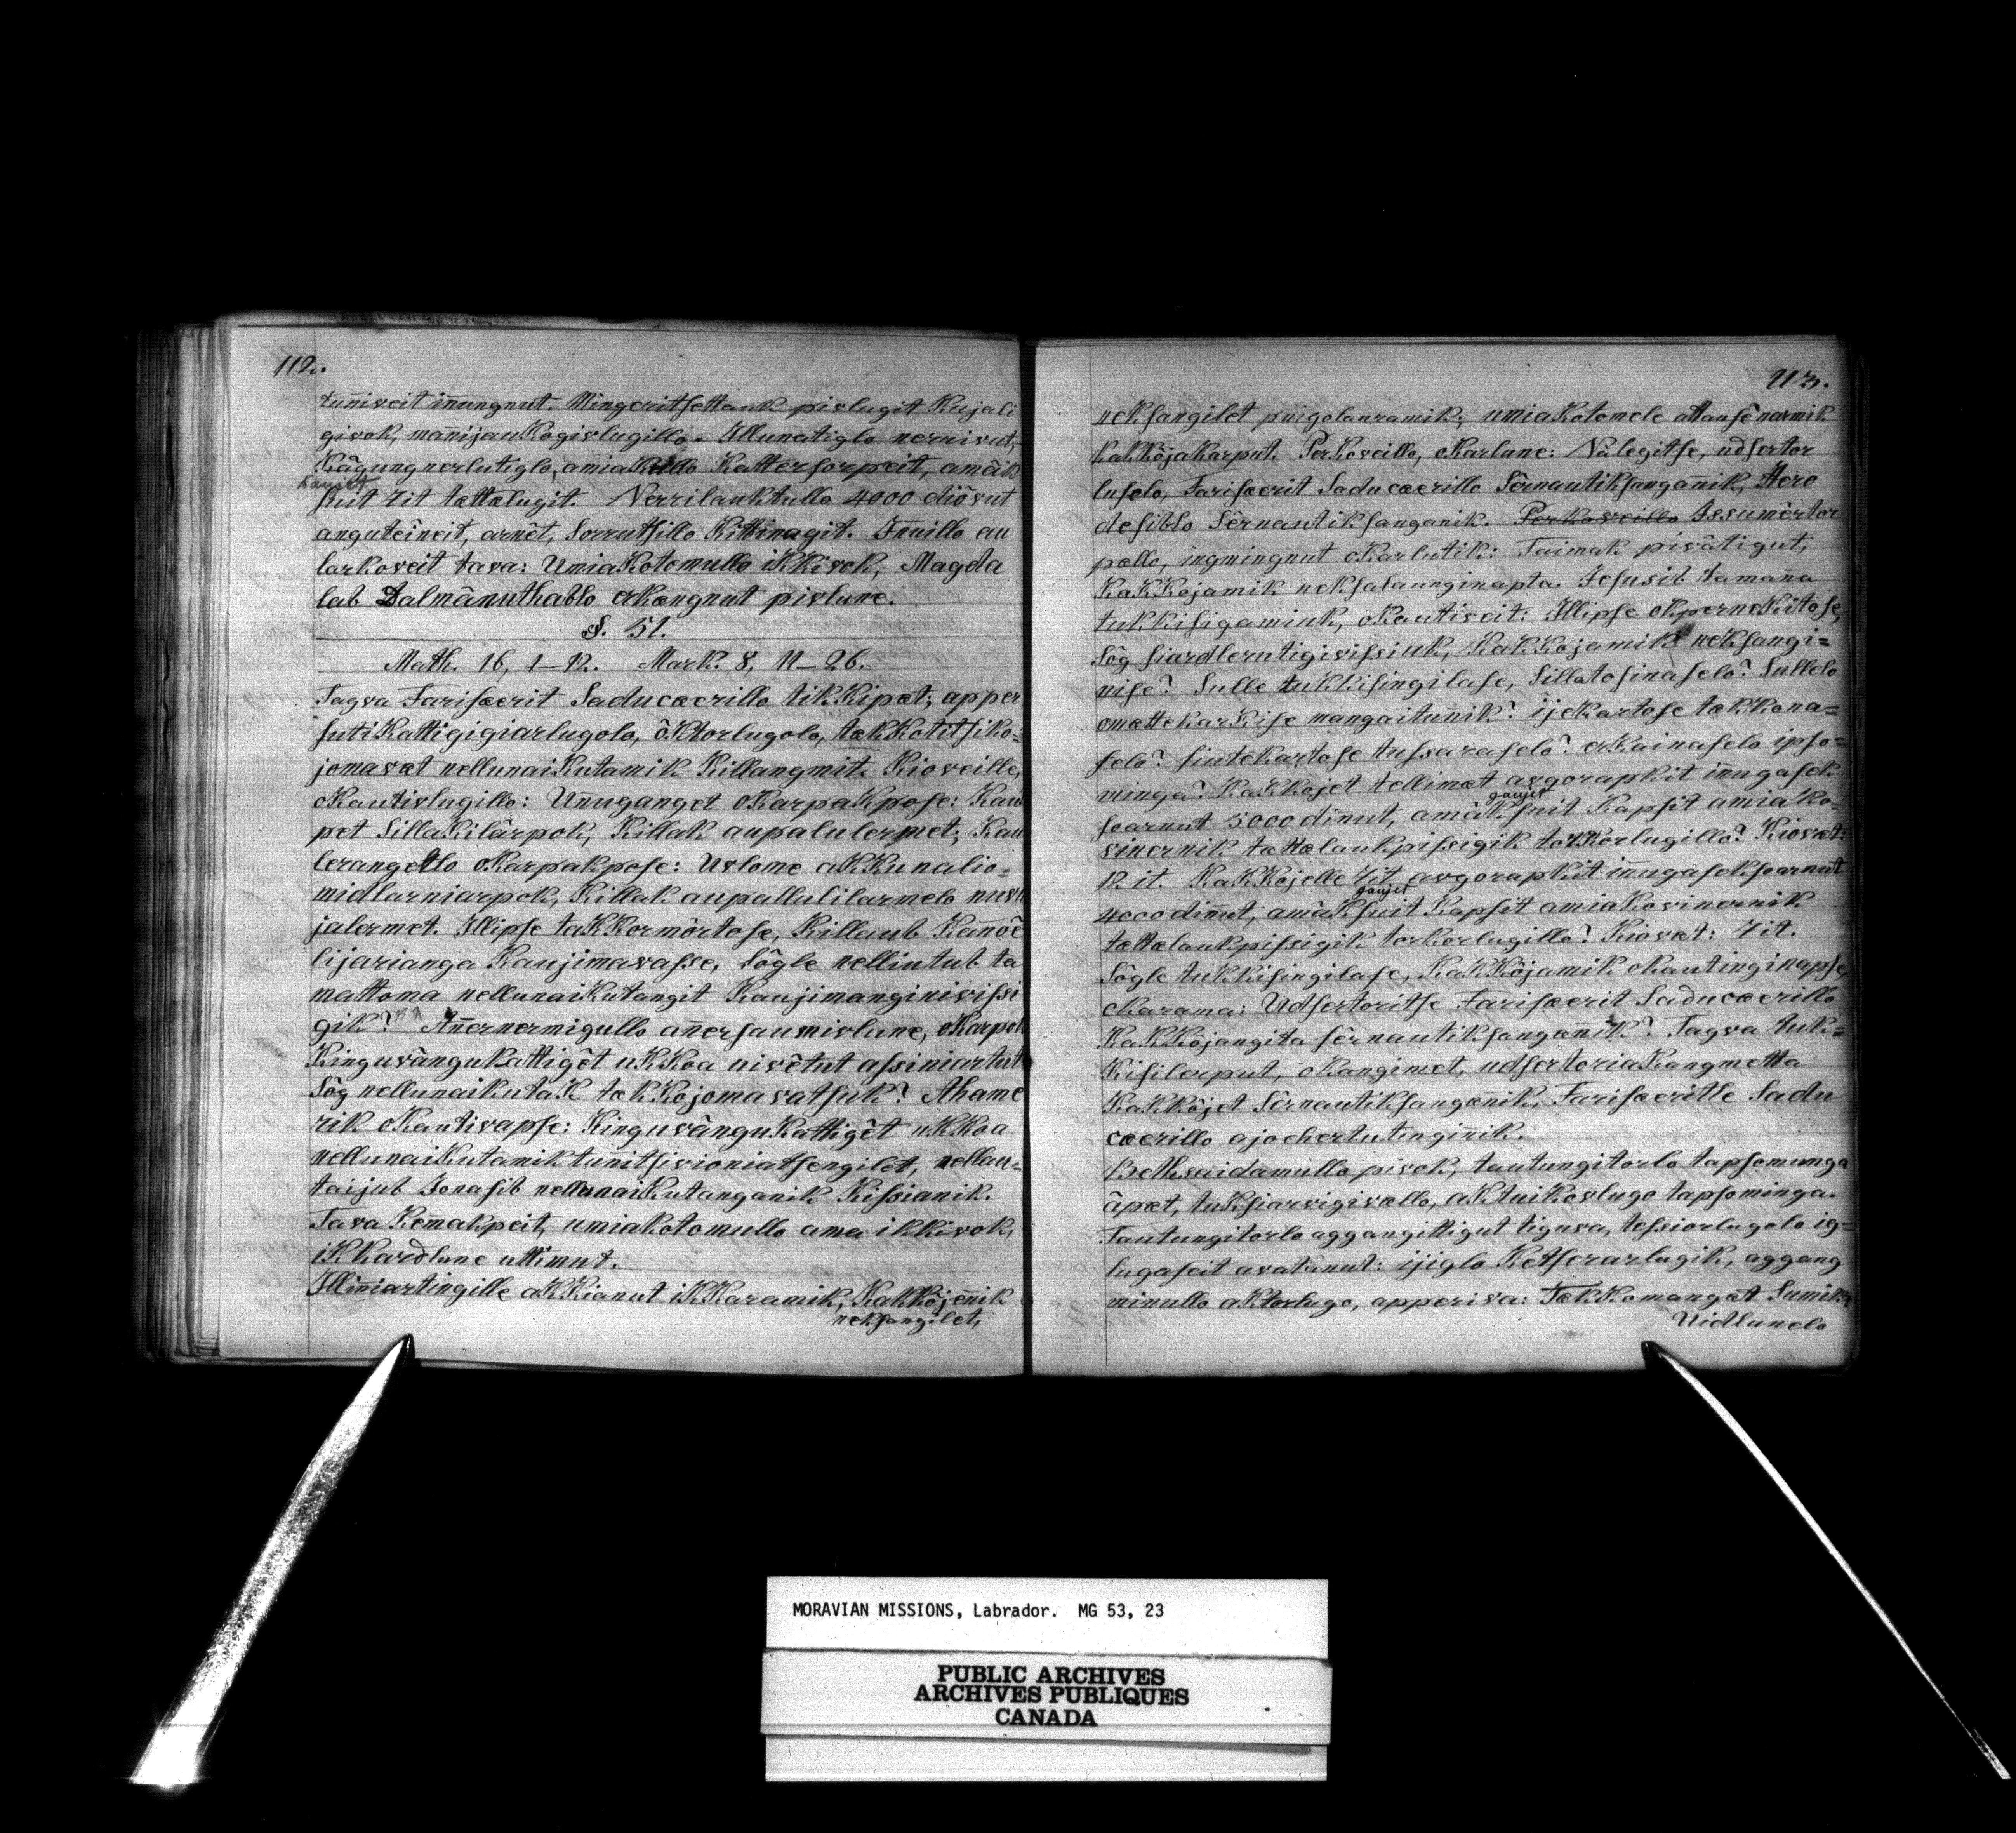 112.
tunniveit innungnut. Mingeritsettauk pivlugit Kujali
givok, mannijaukogivlugillo. Illunatiglo nerrivut,
Kágungnerlutiglo, amiakullo Kattersorpeit, amâk
Kaujet
suit 7it tættælugit. Nerrilauktullo 4000 diôvut
anguteineit, arnêt, Sorrutsillo Kittinagit. Innuillo au
larkoveit tava: UmiaKotomullo iKKivok, Magda
lab Dalmânuthablo akængnut pivlune.
S. 51.
Math. 16, 1-12. Mark. 8, 11-26.
Tagva Farisæerit Saducæerillo tikKipæt; apper
sutiKattigigiarlugolo, ôKtorlugolo, tækKotitsiko=
jomavæt nellunaiKutamik Killangmit. Kioveille,
oKautivlugillo: Unnuganget oKarpaKpose: Kau
pet SillaKilârpok, Killak aupalulermet; Kau
lerangetlo oKarpakpose: Uvlome aKKunalio=
midlarniarpok, Killak aupallulilarmelo nuvu
jalermet. Illipse taKKormôrtose, Killaub Kannoê
lijarianga Kaujimavasse, sôgle nellintub ta
mattoma nellunaiKutangit Kaujimanginivissi
gik? Annernermigullo annersaumivlune, oKarpok
KinguvânguKattigêt uKKoa nivêtut assiniartut
Sôg nellunaikutaK tækKojomavatsuk? Ahame
rik oKautivapse: KinguvânguKattigêt uKKoa
nellunaiKutamik tunnitsivioniatsengilet, nellau=
taijub Jonasib nellunaiKutanganik Kissianik.
Tava Kemmakpeit, umiakotomullo ama ikkivok,
iKKardlune uttimut.
Illinniartingille aKKianut iKKaramik, Kakkôjennik
neksangilet,
113.
neksangilet puigolauramik; umiakotomele attausênarmik
KakKôjakarput. Perkoveillo, oKarlune: Nâlegitse, udsertor
luselo, Farisæerit Saducæerillo Sêrnautiksanganik, Hero
desiblo Sêrnautiksanganik. Perkoveillo Jesumêrtor
pællo, ingmingnut oKarlutik: Taimak pivâtigut,
KakKojamik neksalaunginapta. Jesusib tamanna
tukkisigamiuk, oKautiveit: Illipse okpernekitose,
Sôg siardlerutigivissiuk, KakKojamik neksangi=
nise? Sulle tukkisingilase, Sillatosinaselo? Sullelo
omættekarKise mangaitunnik? ijekartose tækkona=
selo? siutekartose tussaraselo? erKainaselo ipso=
minga? KakKojet tellimæt avgorapkit innugasek
goujet
soarnut 5000 dinnut, amâksuit Kapsit amiako=
vinernik tættælaukpissigik torKorlugillo? Kiovæt:
12 it. KakKojelle 7it avgorapkit innugaseksoarnut
goujet
4000 dinnut, amâKsuit Kapsit amiakovinernik
tættælaukpissigik torkorlugillo? Kiovæt: 7it.
Sôgle tukkisingilase, KakKôjamik okautinginapse,
okarama: Udsertoritse Farisæerit Saducæerillo
KakKôjangita sêrnautiksangænik? Tagva tuk=
Kisilerput, okangimet, udsertoriaKangmetta
KakKôjet Sêrnautiksangænik, Farisæeritle Sadu
cæerillo ajochertutinginnik.
Bethsaidamullo pivok, tautungitorlo tapsomunga
âpæt, tuksiarvigivællo, aKtuikovlugo tapsominga.
Tautungitorlo aggangittigut tiguva, tessiorlugolo ig=
lugaseit avatânut: ijiglo Ketserarlugik, aggang
minullo aktorlugo, apperiva: TækKomangat Sumik?
Uidlunelo
MORAVIAN MISSIONS, Labrador. MG 53, 23
PUBLIC ARCHIVES
ARCHIVES PUBLIQUES
CANADA